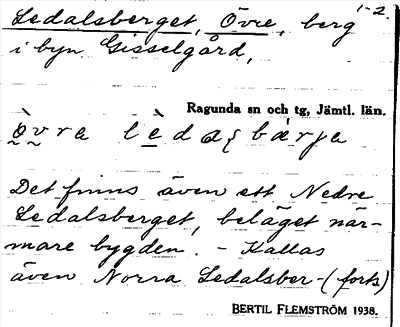 Ledalsberget, Övre, berg 1-2.
i byn Gisselgård,
Ragunda sn och tg, Jämtl. län.
Det finns även ett Nedre
Ledalsberget, beläget när-
mare bygden. - Kallas
även Norra Ledalsber- (forts)
BERTIL FLEMSTRÖM 1938.